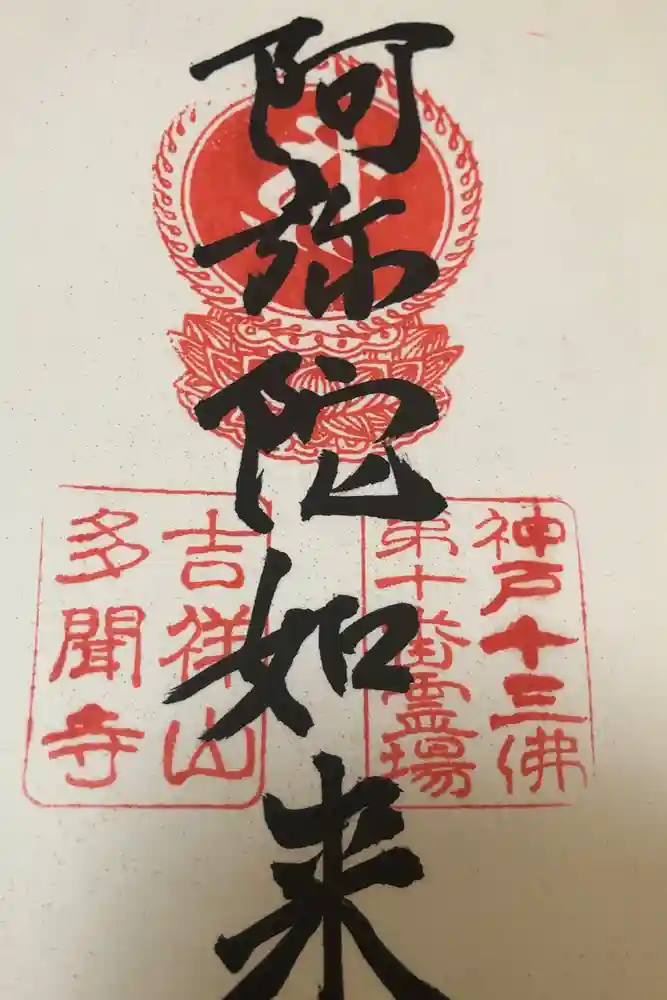 阿弥陀如来
神戸十三佛
第十番霊場
吉祥山
多聞寺